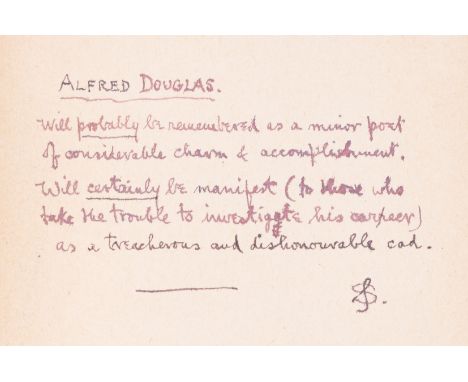 ALFRED DOUGLAS.
Will probably be remembered as a minor poet
of considerable charm & accomplishment.
Will certainly be manifest (to those who
take the trouble to investigate his carpeer)
as a treacherous and dishonourable cad.
SS.